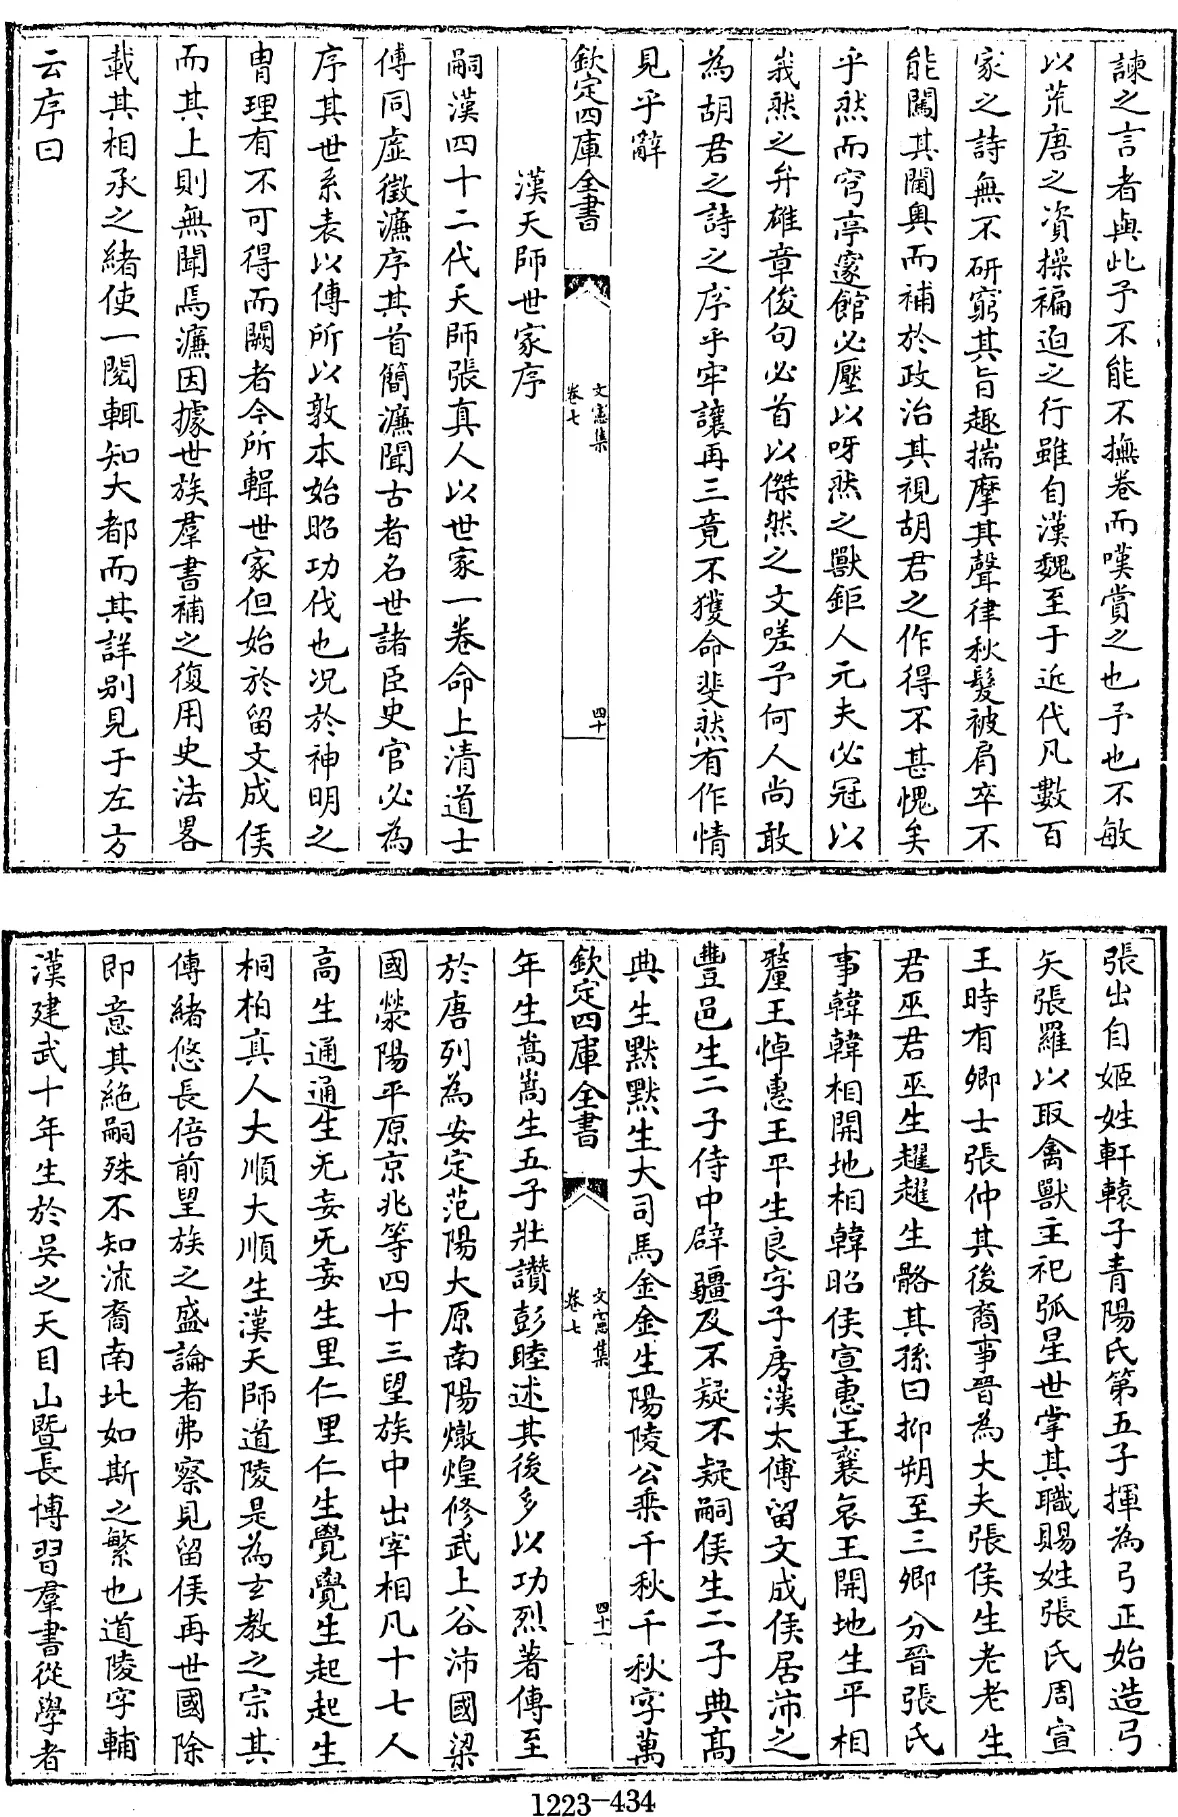 諫之言者與此予不能不撫卷而嘆賞之也予也不敏
以荒唐之資操褊迫之行雖自漢魏至于近代凡數百
家之詩無不研窮其旨趣揣摩其聲律秋髮被肩卒不
能闖其閫奥而補於政治其視胡君之作得不甚愧矣
乎然而穹亭邃館必壓以呀然之獸鉅人元夫必冠以
峩然之弁雄章俊句必首以傑然之文嗟予何人尚敢
為胡君之詩之序乎牢讓再三竟不獲命斐然有作情
見乎辭
欽定四庫全書
文憲集
卷七
四十
漢天師世家序
嗣漢四十二代天師張真人以世家一卷命上清道士
傅同虚徵濂序其首簡濂聞古者名世諸臣史官必為
序其世系表以傳所以敦本始昭功伐也况於神明之
胄理有不可得而闕者今所輯世家但始於留文成侯
而其上則無聞焉濂因據世族羣書補之復用史法畧
載其相承之緒使一閱輒知大都而其詳别見于左方
云序曰
張出自姬姓軒轅子青陽氏第五子揮為弓正始造弓
矢張羅以取禽獸主祀弧星世掌其職賜姓張氏周宣
王時有卿士張仲其後裔事晉為大夫張侯生老老生
君巫君巫生趯趯生骼其孫曰抑朔至三卿分晉張氏
事韓韓相開地相韓昭侯宣惠王襄哀王開地生平相
釐王悼惠王平生良字子房漢太傅留文成侯居沛之
豐邑生二子侍中辟疆及不疑不疑嗣侯生二子典高
典生默默生大司馬金金生陽陵公乘千秋千秋字萬
欽定四庫全書
文憲集
卷七
四十一
年生嵩嵩生五子壯讚彭睦述其後多以功烈著傳至
於唐列為安定范陽大原南陽燉煌修武上谷沛國梁
國滎陽平原京兆等四十三望族中出宰相凡十七人
高生通通生无妄无妄生里仁里仁生覺覺生起起生
桐柏真人大順大順生漢天師道陵是為玄教之宗其
傳緒悠長倍前望族之盛論者弗察見留侯再世國除
即意其絶嗣殊不知流裔南北如斯之繁也道陵字輔
漢建武十年生於吳之天目山暨長博習羣書從學者
1223-434